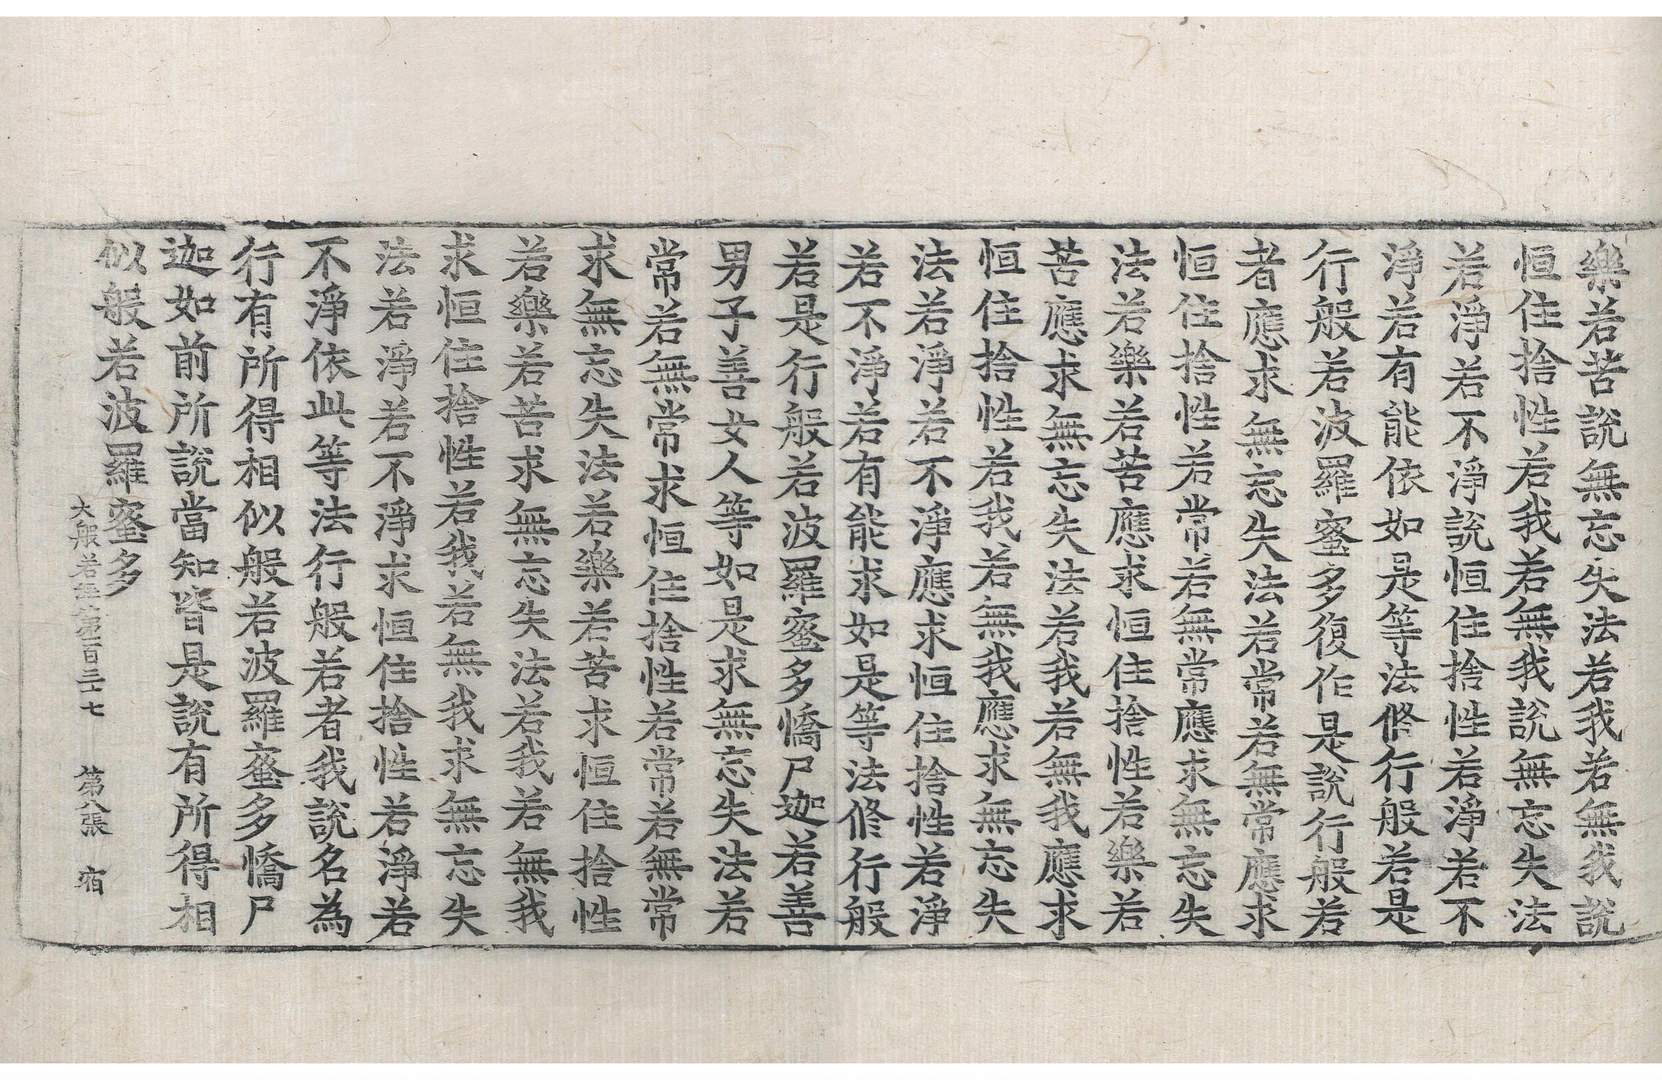 樂若苦說無忘失法若我若無我說
恒住捨性若我若無我說無忘失法
若淨若不淨說恒住捨性若淨若不
淨若有能依如是等法修行般若是
行般若波羅蜜多復作是說行般若
者應求無忘失法若常若無常應求
恒住捨性若常若無常應求無忘失
法若樂若苦應求恒住捨性若樂若
苦應求無忘失法若我若無我應求
恒住捨性若我若無我應求無忘失
法若淨若不淨應求恒住捨性若淨
若不淨若有能求如是等法修行般
若是行般若波羅蜜多憍尸迦若善
男子善女人等如是求無忘失法若
常若無常求恒住捨性若常若無常
求無忘失法若樂若苦求恒住捨性
若樂若苦求無忘失法若我若無我
求恒住捨性若我若無我求無忘失
法若淨若不淨求恒住捨性若淨若
不淨依此等法行般若者我說名為
行有所得相似般若波羅蜜多憍尸
迦如前所說當知皆是說有所得相
似般若波羅蜜多
大般若經第一百三十七 第八張 宿